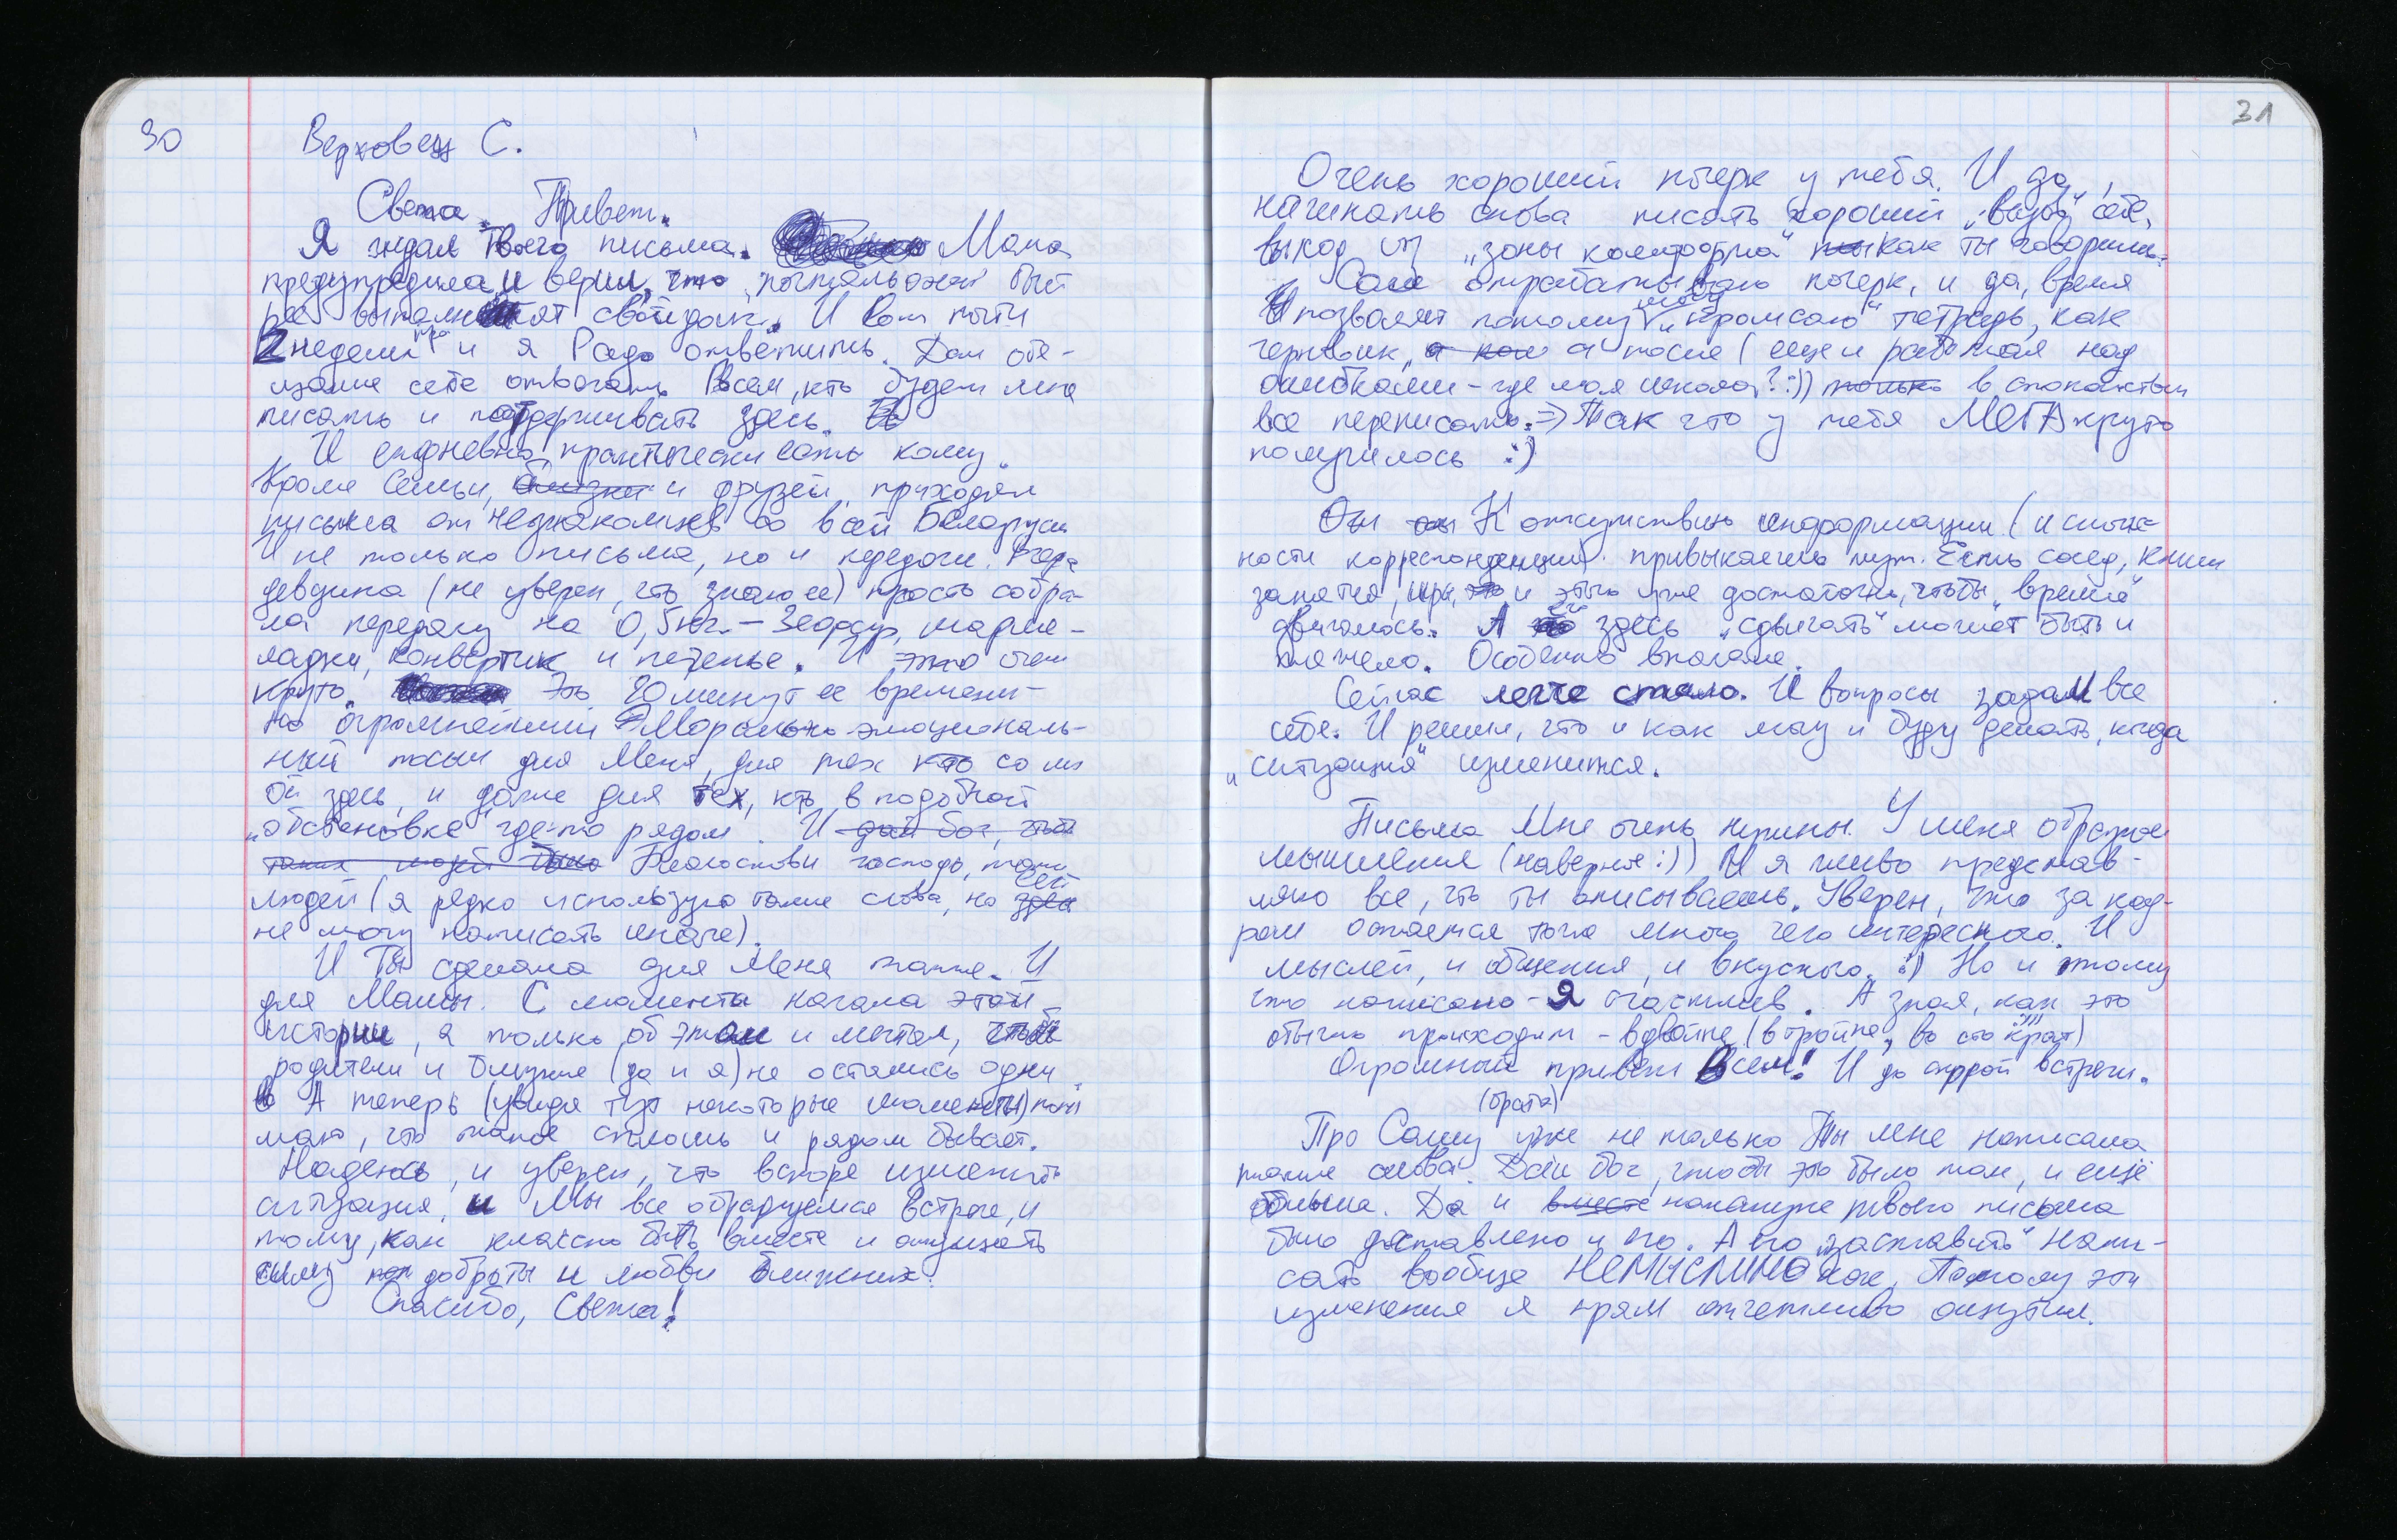 30
Верховец С.
Света. Привет.
Я ждал твоего письма. Мама
предупредила, и верил, что почтальоны быст
рее выполнят свой долг. И вот почти
2 недели и я Рад ответить. Дал обе-
щание себе отвечать Всем, кто будет мне
писать и поддерживать здесь.
И ежедневно практически есть кому.
Кроме Семьи, близки и друзей, приходят
письма от незнакомцев со всей Беларуси
И не только письма, но и передачи. Вчера
девушка (не уверен, что знаю ее) просто собра-
ла передачу на 0,5кг. - Зефир, марме-
ладки, конвертик и печенье. И это очень
круто. Это 20 минут ее времени -
но огромнейший Морально эмоциональ-
ный посыл для Меня, для тех кто со мн
ой здесь, и даже для тех, кто в подобной
"обстановке" где-то рядом. И дай бог, чтоб
таких людей было Благослови господь, таких
людей (я редко использую такие слова, но
не могу написать иначе).
И Ты сделала для Меня также. И
для Мамы. С момента начала этой
истории, я только об этом и мечтал, чтобы
родители и близкие (да и я) не остались одни
А теперь (увидя тут некоторые моменты) пони
маю, что такое сплошь и рядом бывает.
Надеюсь, и уверен, что вскоре изменится
ситуация, и Мы все обрадуемся встрече, и
тому, как классно быть вместе и ощущать
силу доброты и любви ближних.
Спасибо, Света!
31
Очень хороший почерк у тебя. И да,
начинать снова писать хороший "вызов" себе,
выход из "зоны комфорта" как ты говоришь.
Сам отрабатываю почерк, и да, время
позволяет потому "кромсаю" тетрадь, как
черновик, а после (еще и работая над
ошибками - где моя школа? :)) только в спокойствии
все переписать. => Так что у тебя МЕГА круто
получилось :)
К отсутствию информации (и слож-
ности корреспонденции) привыкаешь тут. Есть сосед, книги
занятия, игры, и этого уже достаточно, чтобы "время"
двигалось. А здесь "сдвигать" может быть и
тяжело. Особенно вначале.
Сейчас легче стало. И вопросы задал все
себе. И решил, что и как могу и буду делать, когда
"ситуация" изменится.
Письма Мне очень нужны. У меня образное
мышление (наверное :)) И я живо представ-
ляю все, что ты описываешь. Уверен, что за кад-
ром остается тоже много чего интересного. И
мыслей, и общения, и вкусного. :) Но и этому
что написано - Я счастлив. А зная, как это
обычно происходит - вдвойне (втройне, во сто крат)
Огромный привет Всем! И до скорой встречи.
(брата)
Про Сашу уже не только Ты мне написала
такие слова. Дай бог, чтобы это было так, и ещё
больше. Да и вместе накануне твоего письма
было доставлено и его. А его "заставить" напи-
сать вообще НЕМЫСЛИМО как. Потому эти
изменения я прям отчетливо ощутил.